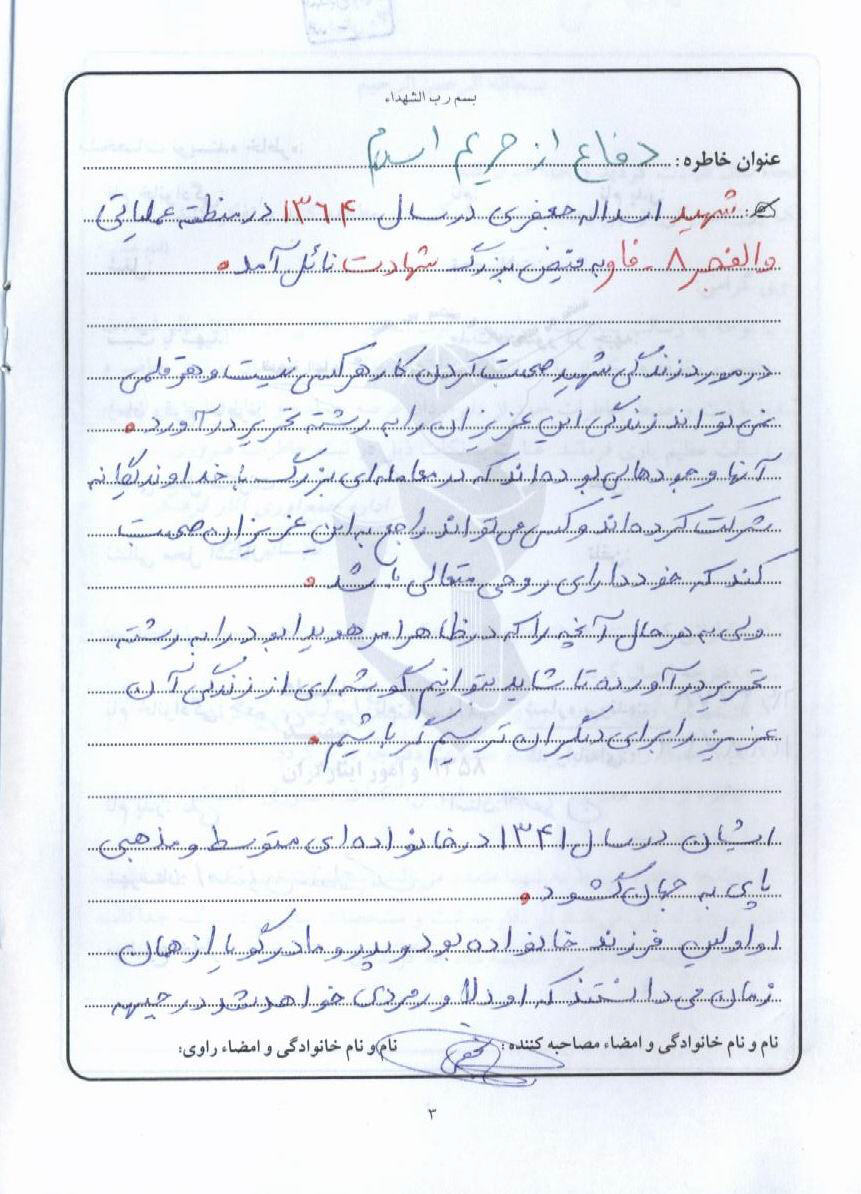 بسم رب الشهداء
عنوان خاطره: دفاع از حریم اسلام
شهید اسداله جعفری در سال ۱۳۶۴ در منطقه عملیاتی
والفجر ۸ - فاو به فیض بزرگ شهادت نائل آمد.
در مورد زندگی شهید صحبت کردن کار هر کسی نیست و هر قلمی
نمی تواند زندگی این عزیزان را به رشته تحریر در آورد.
آنها وجودهایی بوده اند که در معامله ای بزرگ با خداوند یگانه
شرکت کرده اند و کسی می تواند راجع به این عزیزان صحبت
کند که خود دارای روحی متعالی باشد.
ولی به هر حال آنچه را که در ظاهر امر هویدا بود را به رشته
تحریر در آورده تا شاید بتوانیم گوشه ای از زندگی آن
عزیز را برای دیگران ترسیم گر باشیم.
ایشان در سال ۱۳۴۱ در خانواده ای متوسط و مذهبی
پای به جهان گشود.
او اولین فرزند خانواده بود و پدر و مادر گویا از همان
زمان می دانستند که او دلاور مردی خواهد شد در جبهه
نام و نام خانوادگی و امضاء مصاحبه کننده: نام و نام خانوادگی و امضاء راوی:
۳